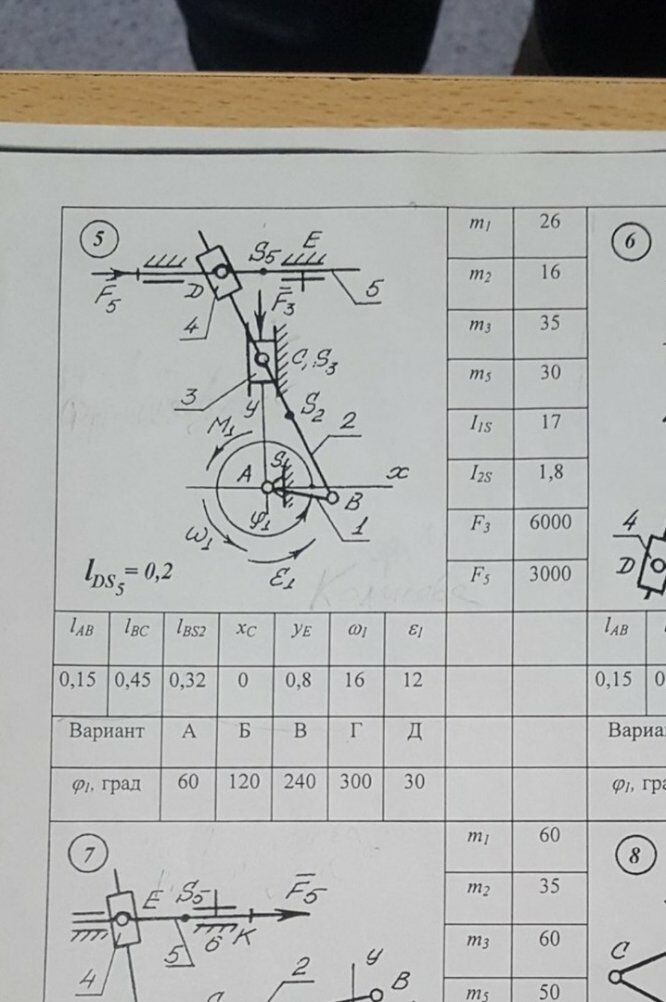 5
S5 E
F5 D 5
F3
4
C, S3
3
y S2 2
M1
A S1 x
φ1 B
ω1 1
ε1
lDS5 = 0,2
m1 26
m2 16
m3 35
m5 30
I1S 17
I2S 1,8
F3 6000
F5 3000
lAB lBC lBS2 xC yE ω1 ε1
0,15 0,45 0,32 0 0,8 16 12
Вариант А Б В Г Д
φ1, град 60 120 240 300 30
6
4
D
lAB
0,15
7
E S5 F5
5 6 K
4
2 y B
m1 60
m2 35
m3 60
m5 50
8
C